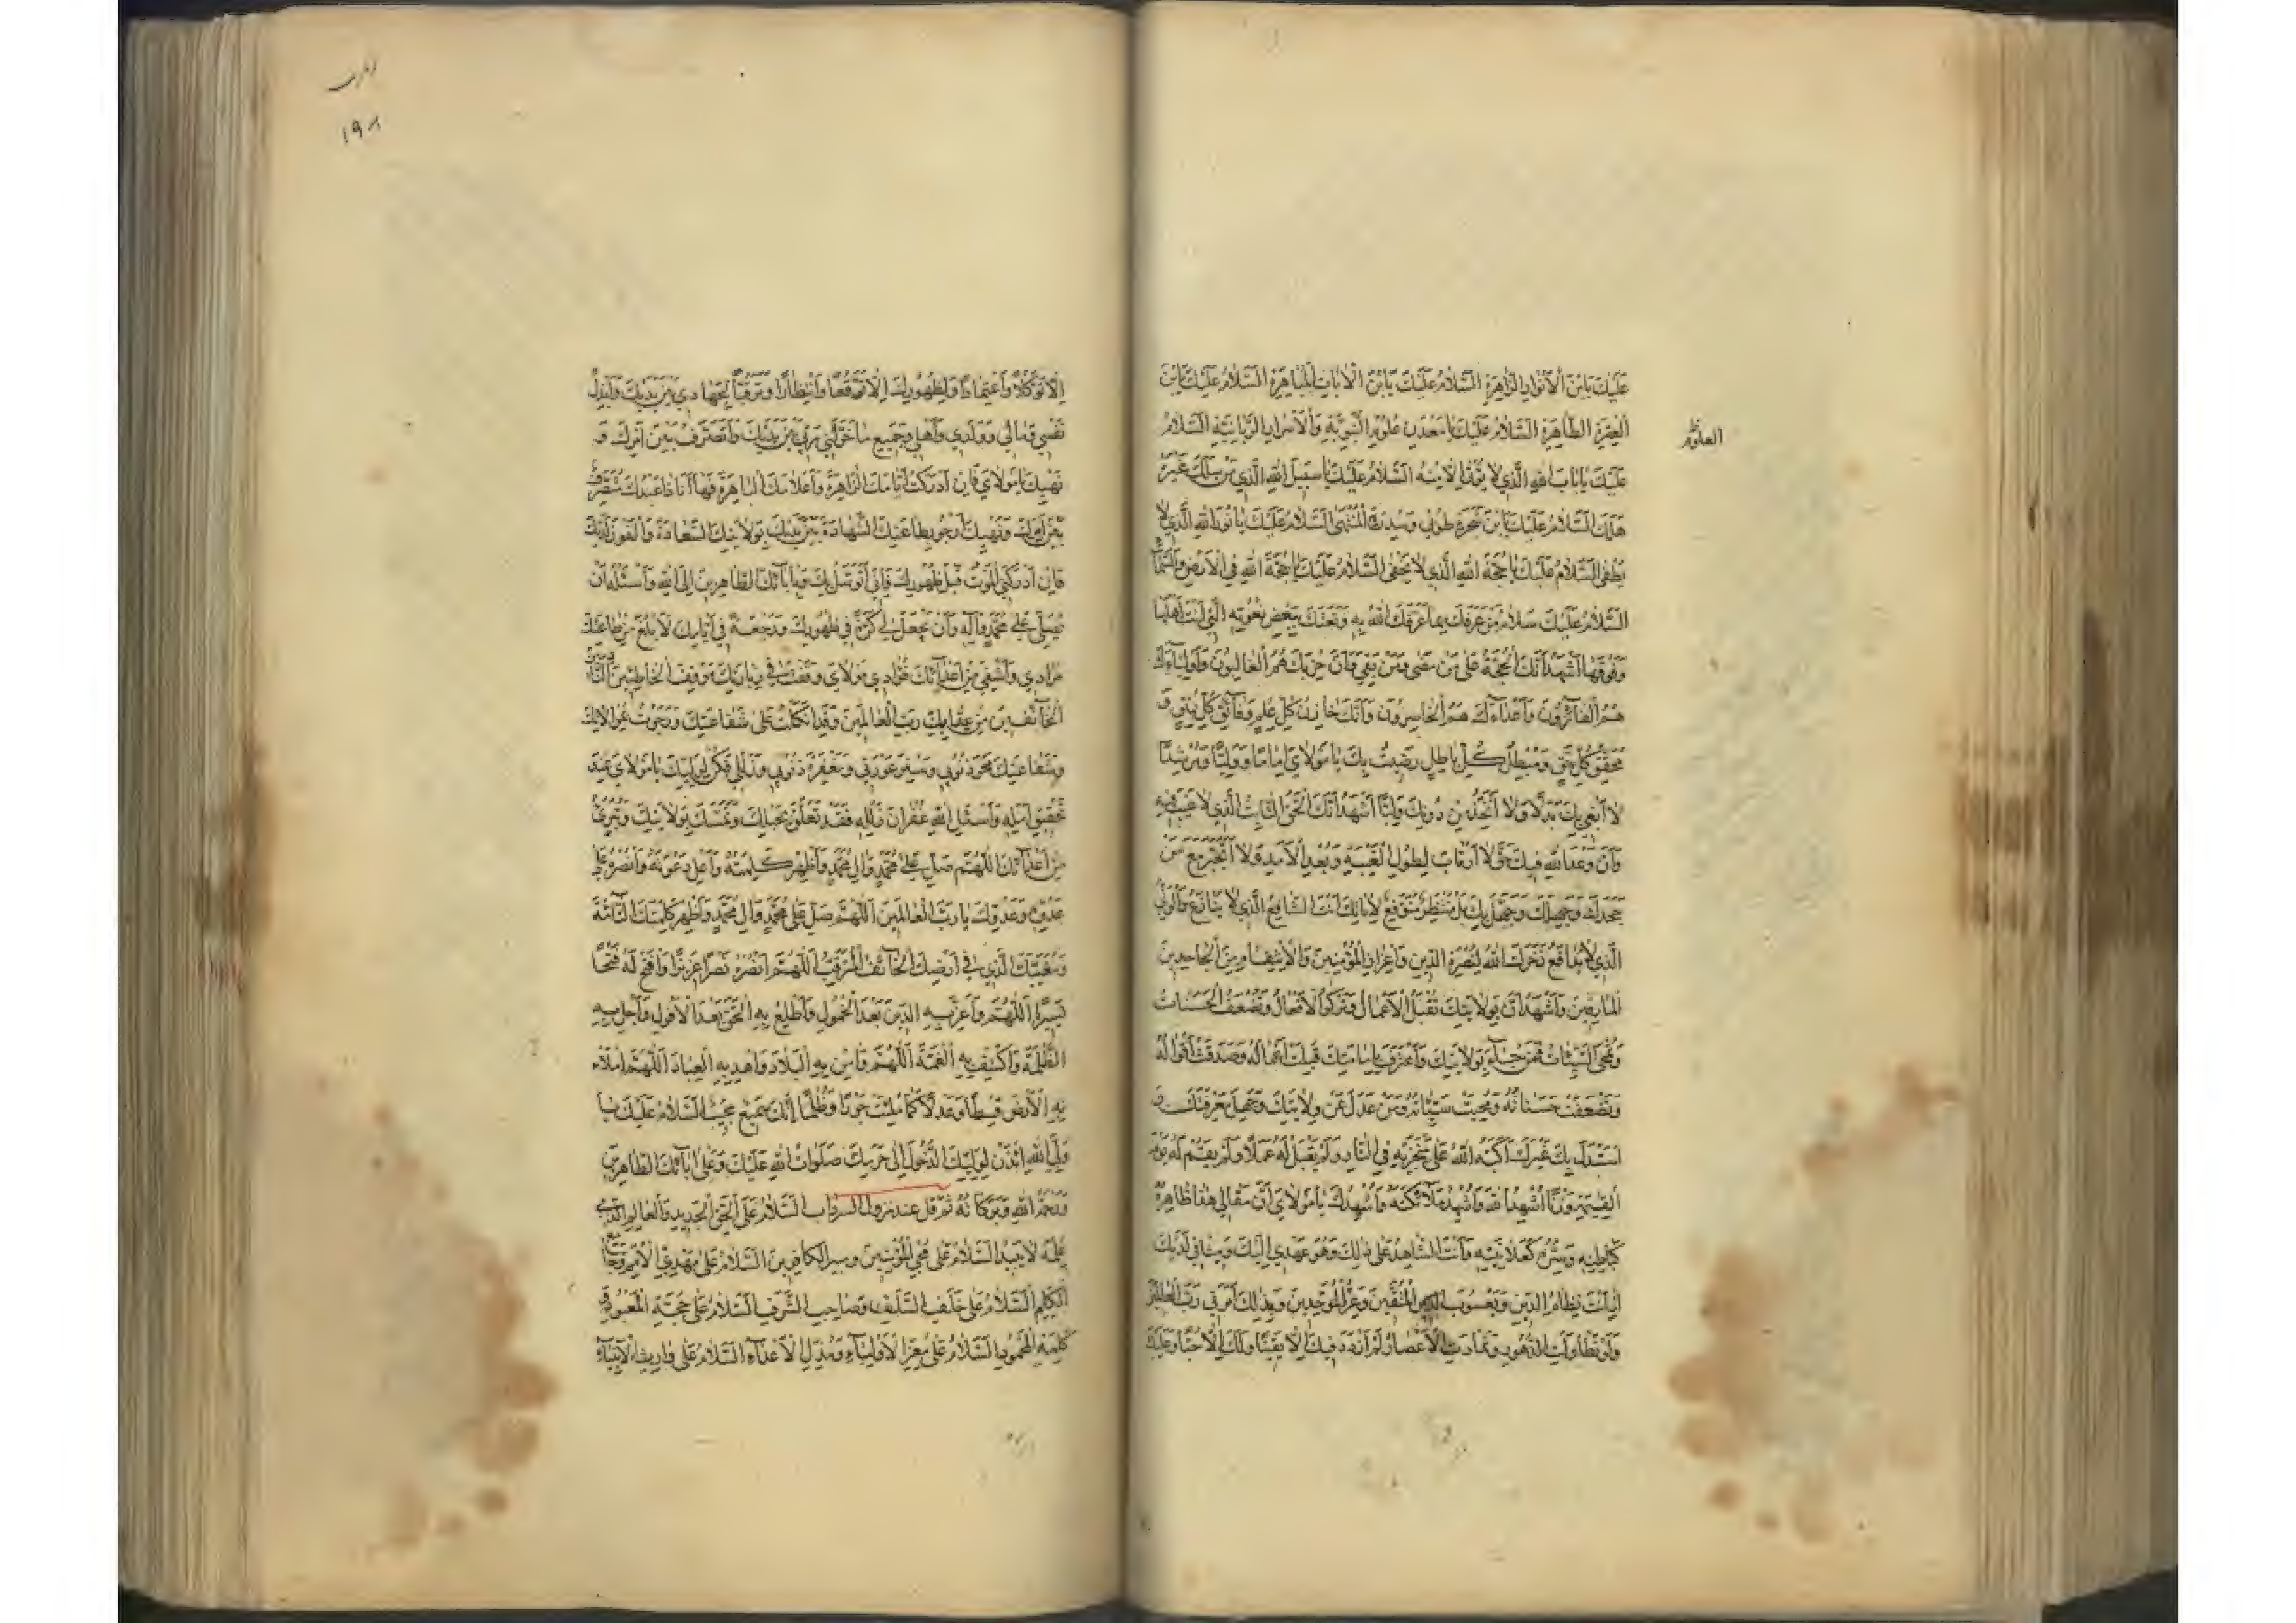 عَلَيْكَ يَابْنَ الْأَنْوَارِ الزَّاهِرَةِ السَّلَامُ عَلَيْكَ يَابْنَ الْآيَاتِ الْبَاهِرَةِ السَّلَامُ عَلَيْكَ يَابْنَ
الْعِتْرَةِ الطَّاهِرَةِ السَّلَامُ عَلَيْكَ يَا مَعْدِنَ عُلُومِ النَّبَوِيَّةِ وَالْأَسْرَارِ الرَّبَّانِيَّةِ السَّلَامُ
العلوم
عَلَيْكَ يَا بَابَ اللهِ الَّذِي لَا يُؤْتَى إِلَّا مِنْهُ السَّلَامُ عَلَيْكَ يَا سَبِيلَ اللهِ الَّذِي مَنْ سَلَكَ غَيْرَهُ
هَلَكَ السَّلَامُ عَلَيْكَ يَابْنَ شَجَرَةِ طُوبَى وَسِدْرَةِ الْمُنْتَهَى السَّلَامُ عَلَيْكَ يَا نُورَ اللهِ الَّذِي لَا
يُطْفَى السَّلَامُ عَلَيْكَ يَا حُجَّةَ اللهِ الَّذِي لَا يَخْفَى السَّلَامُ عَلَيْكَ يَا حُجَّةَ اللهِ فِي الْأَرْضِ وَالسَّمَاءِ
السَّلَامُ عَلَيْكَ سَلَامَ مَنْ عَرَفَكَ بِمَا عَرَّفَكَ اللهُ بِهِ وَنَعَتَكَ بِبَعْضِ نُعُوتِهِ الَّتِي أَنْتَ أَهْلُهَا
وَفَوْقَهَا أَشْهَدُ أَنَّكَ الْحُجَّةُ عَلَى مَنْ مَضَى وَمَنْ بَقِيَ وَأَنَّ حِزْبَكَ هُمُ الْغَالِبُونَ وَأَوْلِيَاءَكَ
هُمُ الْفَائِزُونَ وَأَعْدَاءَكَ هُمُ الْخَاسِرُونَ وَأَنَّكَ خَازِنُ كُلِّ عِلْمٍ وَفَاتِقُ كُلِّ رَتْقٍ وَ
مُحَقِّقُ كُلِّ حَقٍّ وَمُبْطِلُ كُلِّ بَاطِلٍ رَضِيتُ بِكَ يَا مَوْلَايَ إِمَامًا وَوَلِيًّا وَمُرْشِدًا
لَا أَبْغِي بِكَ بَدَلًا وَلَا أَتَّخِذُ مِنْ دُونِكَ وَلِيًّا أَشْهَدُ أَنَّكَ الْحَقُّ الثَّابِتُ الَّذِي لَا عَيْبَ فِيهِ
وَأَنَّ وَعْدَ اللهِ فِيكَ حَقٌّ لَا أَرْتَابُ لِطُولِ الْغَيْبَةِ وَبُعْدِ الْأَمَدِ وَلَا أَتَحَيَّرُ مَعَ مَنْ
جَحَدَكَ وَجَهِلَكَ وَجَهِلَ بِكَ بَلْ مُنْتَظِرٌ مُتَوَقِّعٌ لِأَيَّامِكَ أَنْتَ الشَّافِعُ الَّذِي لَا يُنَازَعُ وَالْوَلِيُّ
الَّذِي لَا يُدَافَعُ ذَخَرَكَ اللهُ لِنُصْرَةِ الدِّينِ وَإِعْزَازِ الْمُؤْمِنِينَ وَالْاِنْتِقَامِ مِنَ الْجَاحِدِينَ
الْمَارِقِينَ وَأَشْهَدُ أَنَّ بِوَلَايَتِكَ تُقْبَلُ الْأَعْمَالُ وَتُزَكَّى الْأَفْعَالُ وَتُضَعَّفُ الْحَسَنَاتُ
وَتُمْحَى السَّيِّئَاتُ فَمَنْ جَاءَ بِوَلَايَتِكَ وَاعْتَرَفَ بِإِمَامَتِكَ قُبِلَتْ أَعْمَالُهُ وَصُدِّقَتْ أَقْوَالُهُ
وَتَضَعَّفَتْ حَسَنَاتُهُ وَمُحِيَتْ سَيِّئَاتُهُ وَمَنْ عَدَلَ عَنْ وِلَايَتِكَ وَجَهِلَ مَعْرِفَتَكَ وَ
اسْتَبْدَلَ بِكَ غَيْرَكَ أَكَبَّهُ اللهُ عَلَى مَنْخِرِهِ فِي النَّارِ وَلَمْ يَقْبَلْ لَهُ عَمَلًا وَلَمْ يُقِمْ لَهُ يَوْمَ
الْقِيمَةِ وَزْنًا أُشْهِدُ اللهَ وَأُشْهِدُ مَلَائِكَتَهُ وَأُشْهِدُكَ يَا مَوْلَايَ أَنَّ مَقَالِي هَذَا ظَاهِرُهُ
كَبَاطِنِهِ وَسِرُّهُ كَعَلَانِيَتِهِ وَأَنْتَ الشَّاهِدُ عَلَى ذَلِكَ وَهُوَ عَهْدِي إِلَيْكَ وَمِيثَاقِي لَدَيْكَ
إِذْ أَنْتَ نِظَامُ الدِّينِ وَيَعْسُوبُ الْمُتَّقِينَ وَعِزُّ الْمُوَحِّدِينَ وَبِذَلِكَ أَمَرَنِي رَبُّ الْعَالَمِينَ
وَلَوْ تَطَاوَلَتِ الدُّهُورُ وَتَمَادَتِ الْأَعْصَارُ لَمْ أَزْدَدْ فِيكَ إِلَّا يَقِينًا وَلَكَ إِلَّا حُبًّا وَعَلَيْكَ
١٩٨
إِلَّا تَوَكُّلًا وَاعْتِمَادًا وَلِظُهُورِكَ إِلَّا تَوَقُّعًا وَانْتِظَارًا وَتَرَقُّبًا لِجِهَادِي بَيْنَ يَدَيْكَ وَأَبْذُلُ
نَفْسِي وَمَالِي وَوَلَدِي وَأَهْلِي وَجَمِيعَ مَا خَوَّلَنِي رَبِّي بَيْنَ يَدَيْكَ وَأَتَصَرَّفُ بَيْنَ أَمْرِكَ وَ
نَهْيِكَ يَا مَوْلَايَ فَإِنْ أَدْرَكْتُ أَيَّامَكَ الزَّاهِرَةَ وَأَعْلَامَكَ الْبَاهِرَةَ فَهَا أَنَا ذَا عَبْدُكَ مُتَصَرِّفٌ
بَيْنَ أَمْرِكَ وَنَهْيِكَ أَرْجُو بِطَاعَتِكَ الشَّهَادَةَ بَيْنَ يَدَيْكَ بِوَلَايَتِكَ السَّعَادَةَ وَالْفَوْزَ لَدَيْكَ
فَإِنْ أَدْرَكَنِي الْمَوْتُ قَبْلَ ظُهُورِكَ فَإِنِّي أَتَوَسَّلُ بِكَ وَبِآبَائِكَ الطَّاهِرِينَ إِلَى اللهِ وَأَسْئَلُهُ أَنْ
يُصَلِّيَ عَلَى مُحَمَّدٍ وَآلِهِ وَأَنْ يَجْعَلَ لِي كَرَّةً فِي ظُهُورِكَ وَرَجْعَةً فِي أَيَّامِكَ لِأَبْلُغَ مِنْ طَاعَتِكَ
مُرَادِي وَأَشْفِيَ مِنْ أَعْدَائِكَ فُؤَادِي مَوْلَايَ وَقَفْتُ فِي زِيَارَتِكَ مَوْقِفَ الْخَاطِئِينَ النَّادِمِينَ
الْخَائِفِينَ مِنْ عِقَابِكَ رَبَّ الْعَالَمِينَ وَقَدِ اتَّكَلْتُ عَلَى شَفَاعَتِكَ وَرَجَوْتُ بِمُوَالَاتِكَ
وَشَفَاعَتِكَ مَحْوَ ذُنُوبِي وَسَتْرَ عَوْرَتِي وَمَغْفِرَةَ ذُنُوبِي وَزَلَلِي فَكُنْ لِوَلِيِّكَ يَا مَوْلَايَ عِنْدَ
تَحْقِيقِ أَمَلِهِ وَاسْئَلِ اللهَ غُفْرَانَ زَلَلِهِ فَقَدْ تَعَلَّقَ بِحَبْلِكَ وَتَمَسَّكَ بِوَلَايَتِكَ وَتَبَرَّءَ
مِنْ أَعْدَائِكَ اللَّهُمَّ صَلِّ عَلَى مُحَمَّدٍ وَآلِ مُحَمَّدٍ وَأَظْهِرْ كَلِمَتَهُ وَأَعْلِ دَعْوَتَهُ وَانْصُرْهُ عَلَى
عَدُوِّهِ وَعَدُوِّكَ يَا رَبَّ الْعَالَمِينَ اللَّهُمَّ صَلِّ عَلَى مُحَمَّدٍ وَآلِ مُحَمَّدٍ وَأَظْهِرْ كَلِمَتَكَ التَّامَّةَ
وَمُغَيَّبَكَ الَّذِي فِي أَرْضِكَ الْخَائِفَ الْمُتَرَقِّبَ اللَّهُمَّ انْصُرْهُ نَصْرًا عَزِيزًا وَافْتَحْ لَهُ فَتْحًا
يَسِيرًا اللَّهُمَّ وَأَعِزَّ بِهِ الدِّينَ بَعْدَ الْخُمُولِ وَأَطْلِعْ بِهِ الْحَقَّ بَعْدَ الْأُفُولِ وَأَجْلِ بِهِ
الظُّلْمَةَ وَاكْشِفْ بِهِ الْغُمَّةَ اللَّهُمَّ وَآمِنْ بِهِ الْبِلَادَ وَاهْدِ بِهِ الْعِبَادَ اللَّهُمَّ امْلَأْ
بِهِ الْأَرْضَ قِسْطًا وَعَدْلًا كَمَا مُلِئَتْ جَوْرًا وَظُلْمًا إِنَّكَ سَمِيعٌ مُجِيبٌ السَّلَامُ عَلَيْكَ يَا
وَلِيَّ اللهِ ائْذَنْ لِوَلِيِّكَ الدُّخُولَ إِلَى حَرَمِكَ صَلَوَاتُ اللهِ عَلَيْكَ وَعَلَى آبَائِكَ الطَّاهِرِينَ
وَرَحْمَةُ اللهِ وَبَرَكَاتُهُ ثُمَّ قُلْ عند نزول السرداب السَّلَامُ عَلَى الْحَقِّ الْجَدِيدِ وَالْعَالِمِ الَّذِي
عِلْمُهُ لَا يَبِيدُ السَّلَامُ عَلَى مُحْيِي الْمُؤْمِنِينَ وَمُبِيرِ الْكَافِرِينَ السَّلَامُ عَلَى مَهْدِيِّ الْأُمَمِ وَجَامِعِ
الْكَلِمِ السَّلَامُ عَلَى خَلَفِ السَّلَفِ وَصَاحِبِ الشَّرَفِ السَّلَامُ عَلَى حُجَّةِ الْمَعْبُودِ وَ
كَلِمَةِ الْمَحْمُودِ السَّلَامُ عَلَى مُعِزِّ الْأَوْلِيَاءِ وَمُذِلِّ الْأَعْدَاءِ السَّلَامُ عَلَى وَارِثِ الْأَنْبِيَاءِ